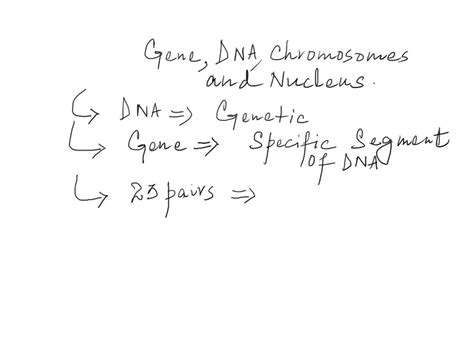 Gene, DNA, Chromosomes
and Nucleus.
↳ DNA => Genetic
↳ Gene => Specific Segment
of DNA
↳ 23 pairs =>